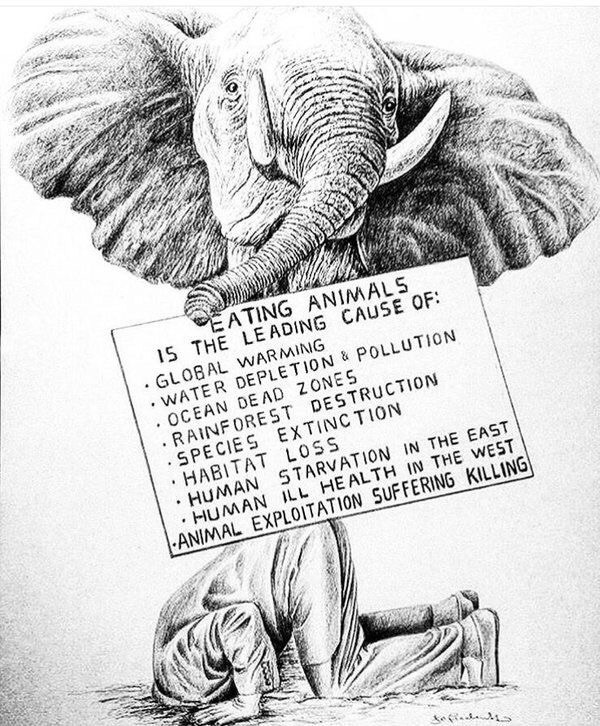 EATING ANIMALS
IS THE LEADING CAUSE OF:
• GLOBAL WARMING
• WATER DEPLETION & POLLUTION
• OCEAN DEAD ZONES
• RAINFOREST DESTRUCTION
• SPECIES EXTINCTION
• HABITAT LOSS
• HUMAN STARVATION IN THE EAST
• HUMAN ILL HEALTH IN THE WEST
•ANIMAL EXPLOITATION SUFFERING KILLING